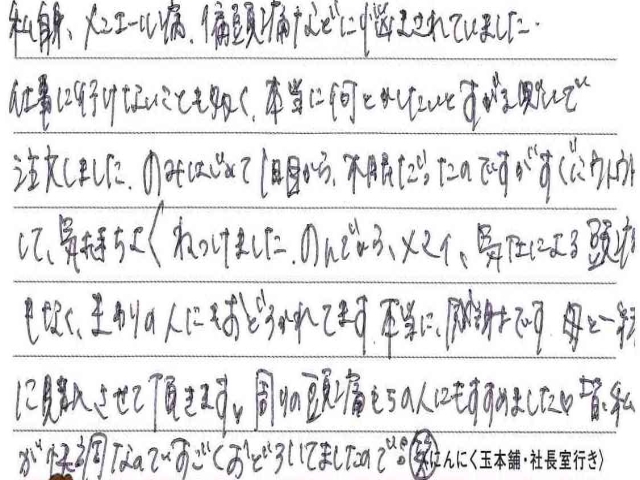 私自身、メニエール病、偏頭痛などに悩まされていました。
仕事に行けないことも多く、本当に何とかしたいとすがる思いで
注文しました。のみはじめて1日目から、不眠だったのですがすぐにウトウト
して、気持ちよくねつけました。のんでから、メマイ、気圧による頭痛
もなく、まわりの人にもおどろかれてます。本当に、感謝です。母と一緒
に購入させて頂きます。周りの頭痛もちの人にもすすめました♡皆、私
がなのですごくおどろいてましたので。笑
にんにく玉本舗・社長室行き）